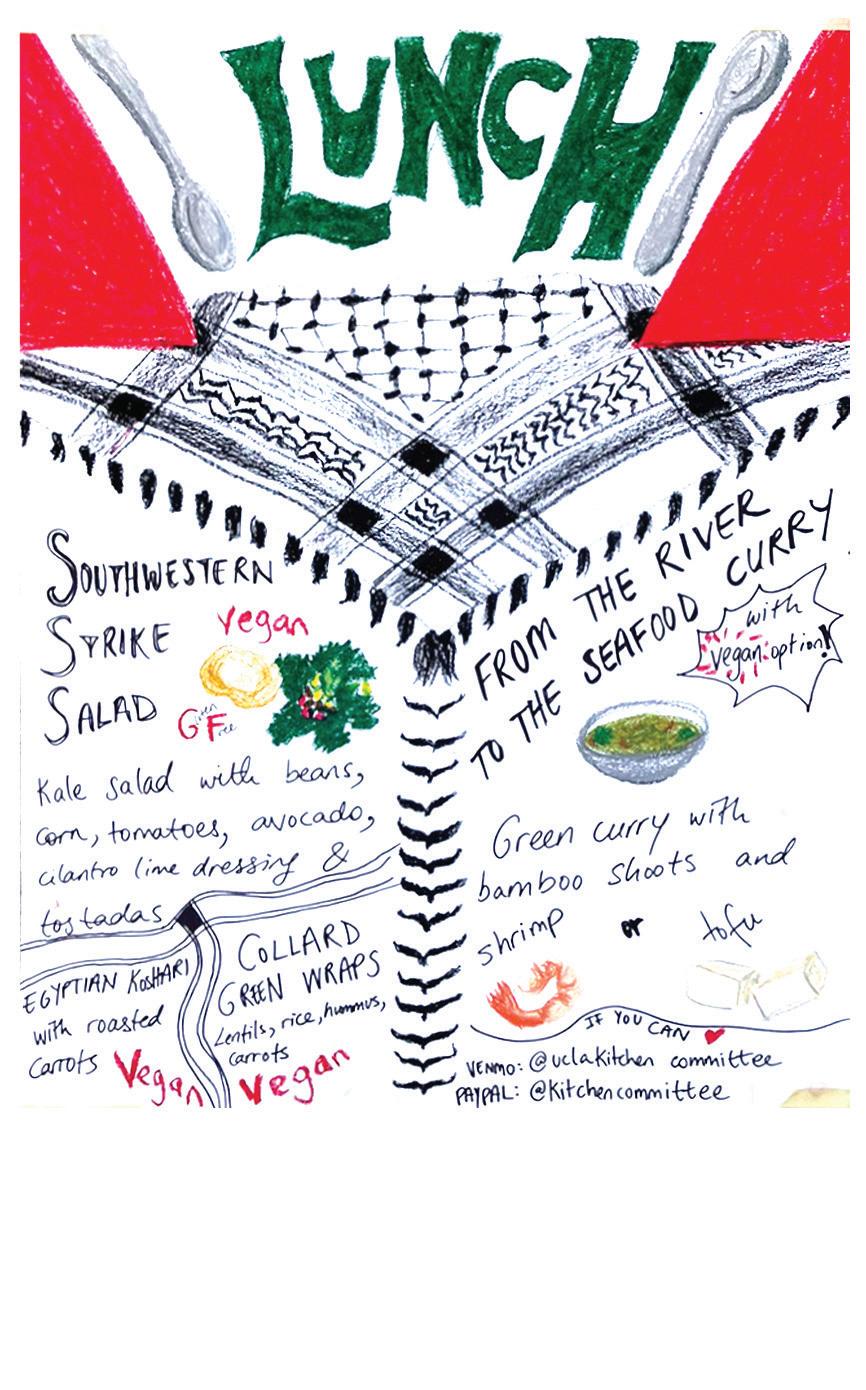 LUNCH
SOUTHWESTERN
STRIKE
SALAD
Vegan
Gluten Free
Kale salad with beans,
corn, tomatoes, avocado,
cilantro lime dressing &
tostadas
EGYPTIAN KOSHARI
with roasted
carrots
Vegan
COLLARD
GREEN WRAPS
Lentils, rice, hummus,
carrots
Vegan
FROM THE RIVER
TO THE SEAFOOD CURRY
with
vegan option!
Green curry with
bamboo shoots and
shrimp or tofu
IF YOU CAN
VENMO: @uclakitchen committee
PAYPAL: @kitchencommittee